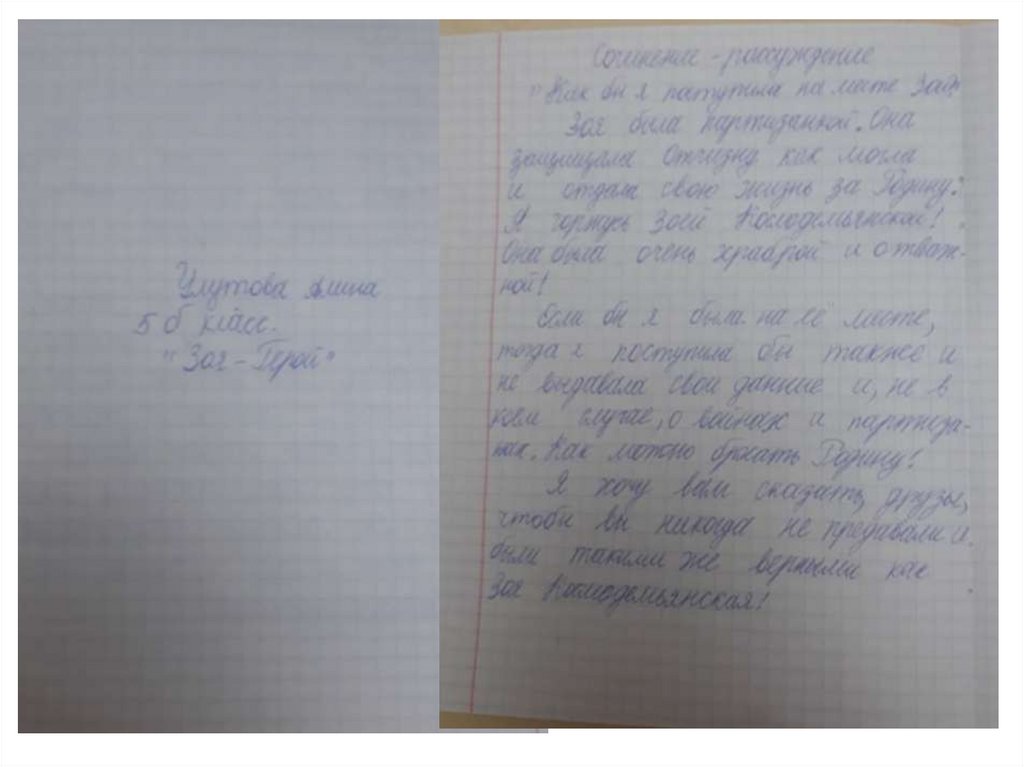 Улутова Амина
5 б класс.
"Зоя-Герой"
Сочинение-рассуждение
"Как бы я поступила на месте Зои?
Зоя была партизанкой. Она
защищала Отчизну как могла
и отдала свою жизнь за Родину.
Я горжусь Зоей Космодемьянской!
Она была очень храброй и отваж-
ной!
Если бы я была на её месте,
тогда я поступила бы также и
не выдавала свои данные и, не в
коем случае, о войнах и партиза-
нах. Как можно бросать Родину!
Я хочу вам сказать, друзья,
чтобы вы никогда не предавали и
были такими же верными как
Зоя Космодемьянская!